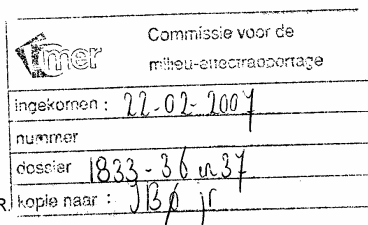 Commissie voor de
mer
milieu-effectrapportage
ingekomen : 22-02-2007
nummer
dossier 1833-36 en 37
R kopie naar : JBo jr